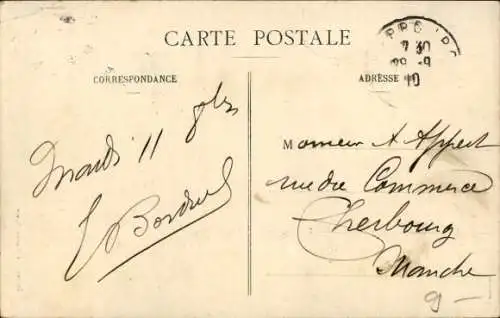 CARTE POSTALE
CORRESPONDANCE
ADRESSE
Mardi 11
Monsieur A Appert
rue du Commerce
Cherbourg
Manche
9 -